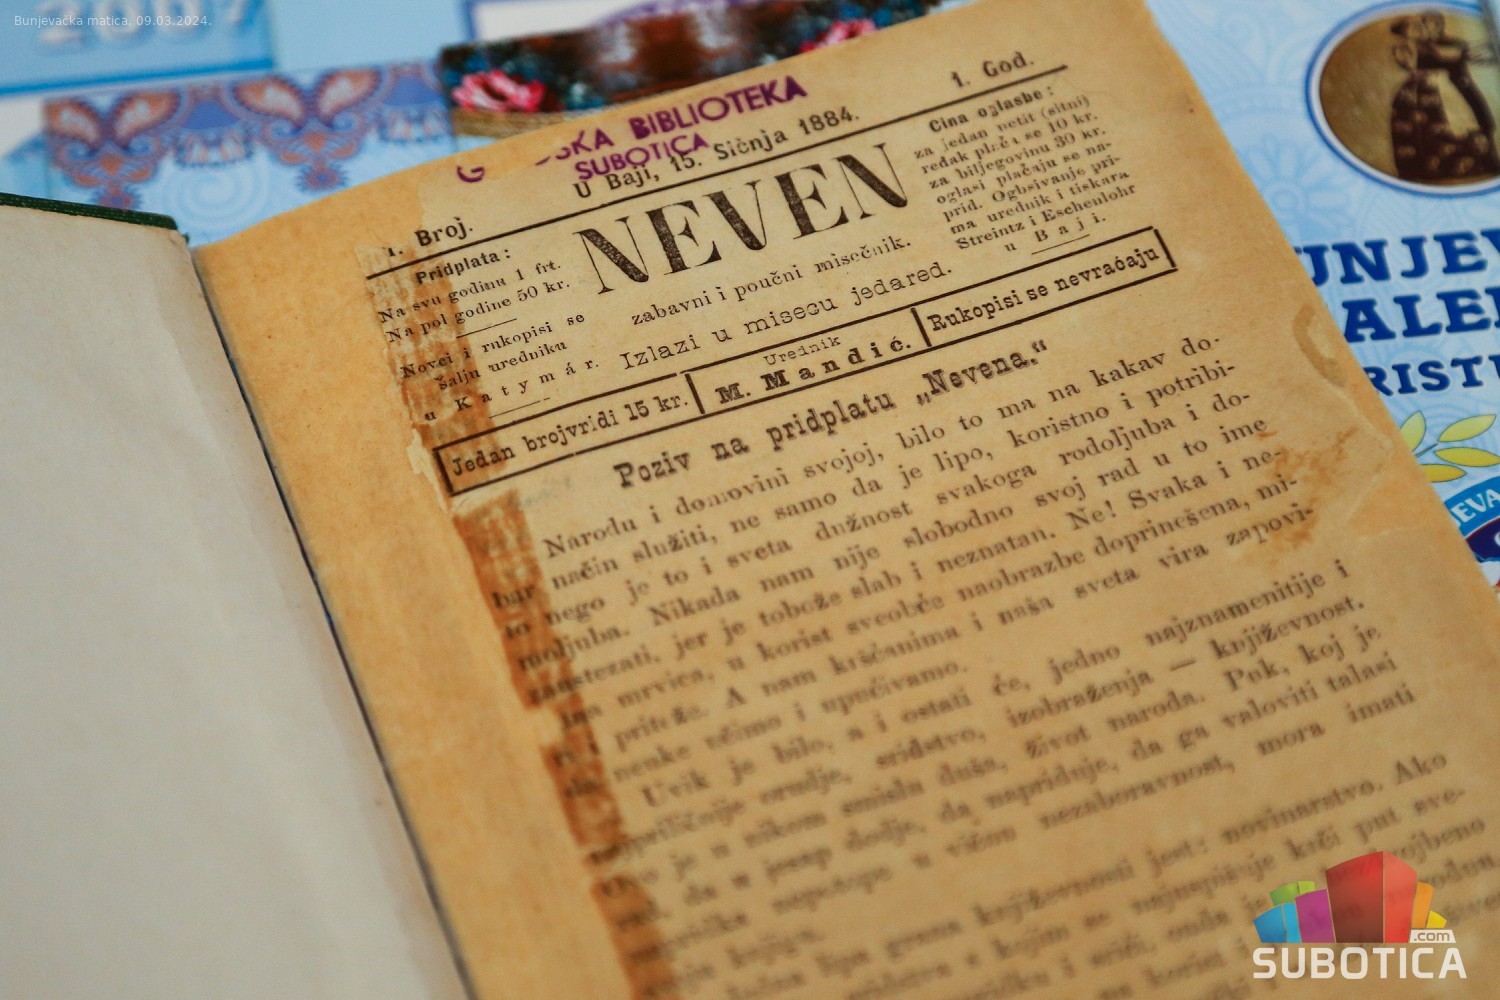 Bunjevačka matica, 09.03.2024.
2007
SKA BIBLIOTEKA
SUBOTICA
1. Broj.
U Baji, 15. Sičnja 1884.
1. God.
Pridplata:
Na svu godinu 1 frt.
Na pol godine 50 kr.
Novci i rukopisi se
šalju uredniku
u Katymár.
NEVEN
zabavni i poučni misečnik.
Izlazi u misecu jedared.
Cina oglasbe:
za jedan petit (sitni)
redak plaća se 10 kr.
za biljegovinu 30 kr.
oglasi plaćaju se na-
prid. Oglašivanje pri-
ma urednik i tiskara
Streintz i Eschenlohr
u Baji.
Jedan broj vridi 15 kr.
Urednik
M. Mandić.
Rukopisi se nevraćaju
Poziv na pridplatu „Nevena.“
Narodu i domovini svojoj, bilo to ma na kakav do-
bar način služiti, ne samo da je lipo, koristno i potribi-
to nego je to i sveta dužnost svakoga rodoljuba i do-
moljuba. Nikada nam nije slobodno svoj rad u to ime
zaustezati, jer je tobože slab i neznatan. Ne! Svaka i ne-
mrvica, u korist sveobće naobrazbe doprinešena, mi-
priteže. A nam kršćanima i naša sveta vira zapovi-
nenke učimo i upućivamo.
Uvik je bilo, a i ostati će, jedno najznamenitije i
orudje, sridstvo, izobraženja — književnost.
je u nikom smislu duša, život naroda. Puk, koj je
da u jesap dodje, da napriduje, da ga valoviti talasi
nepotope u vičnu nezaboravnost, mora imati
grana književnosti jest: novinarstvo. Ako
s kojim se najuspišnije krči put sve-
UNJEV
ALE
RIST
EVA
.com
SUBOTICA